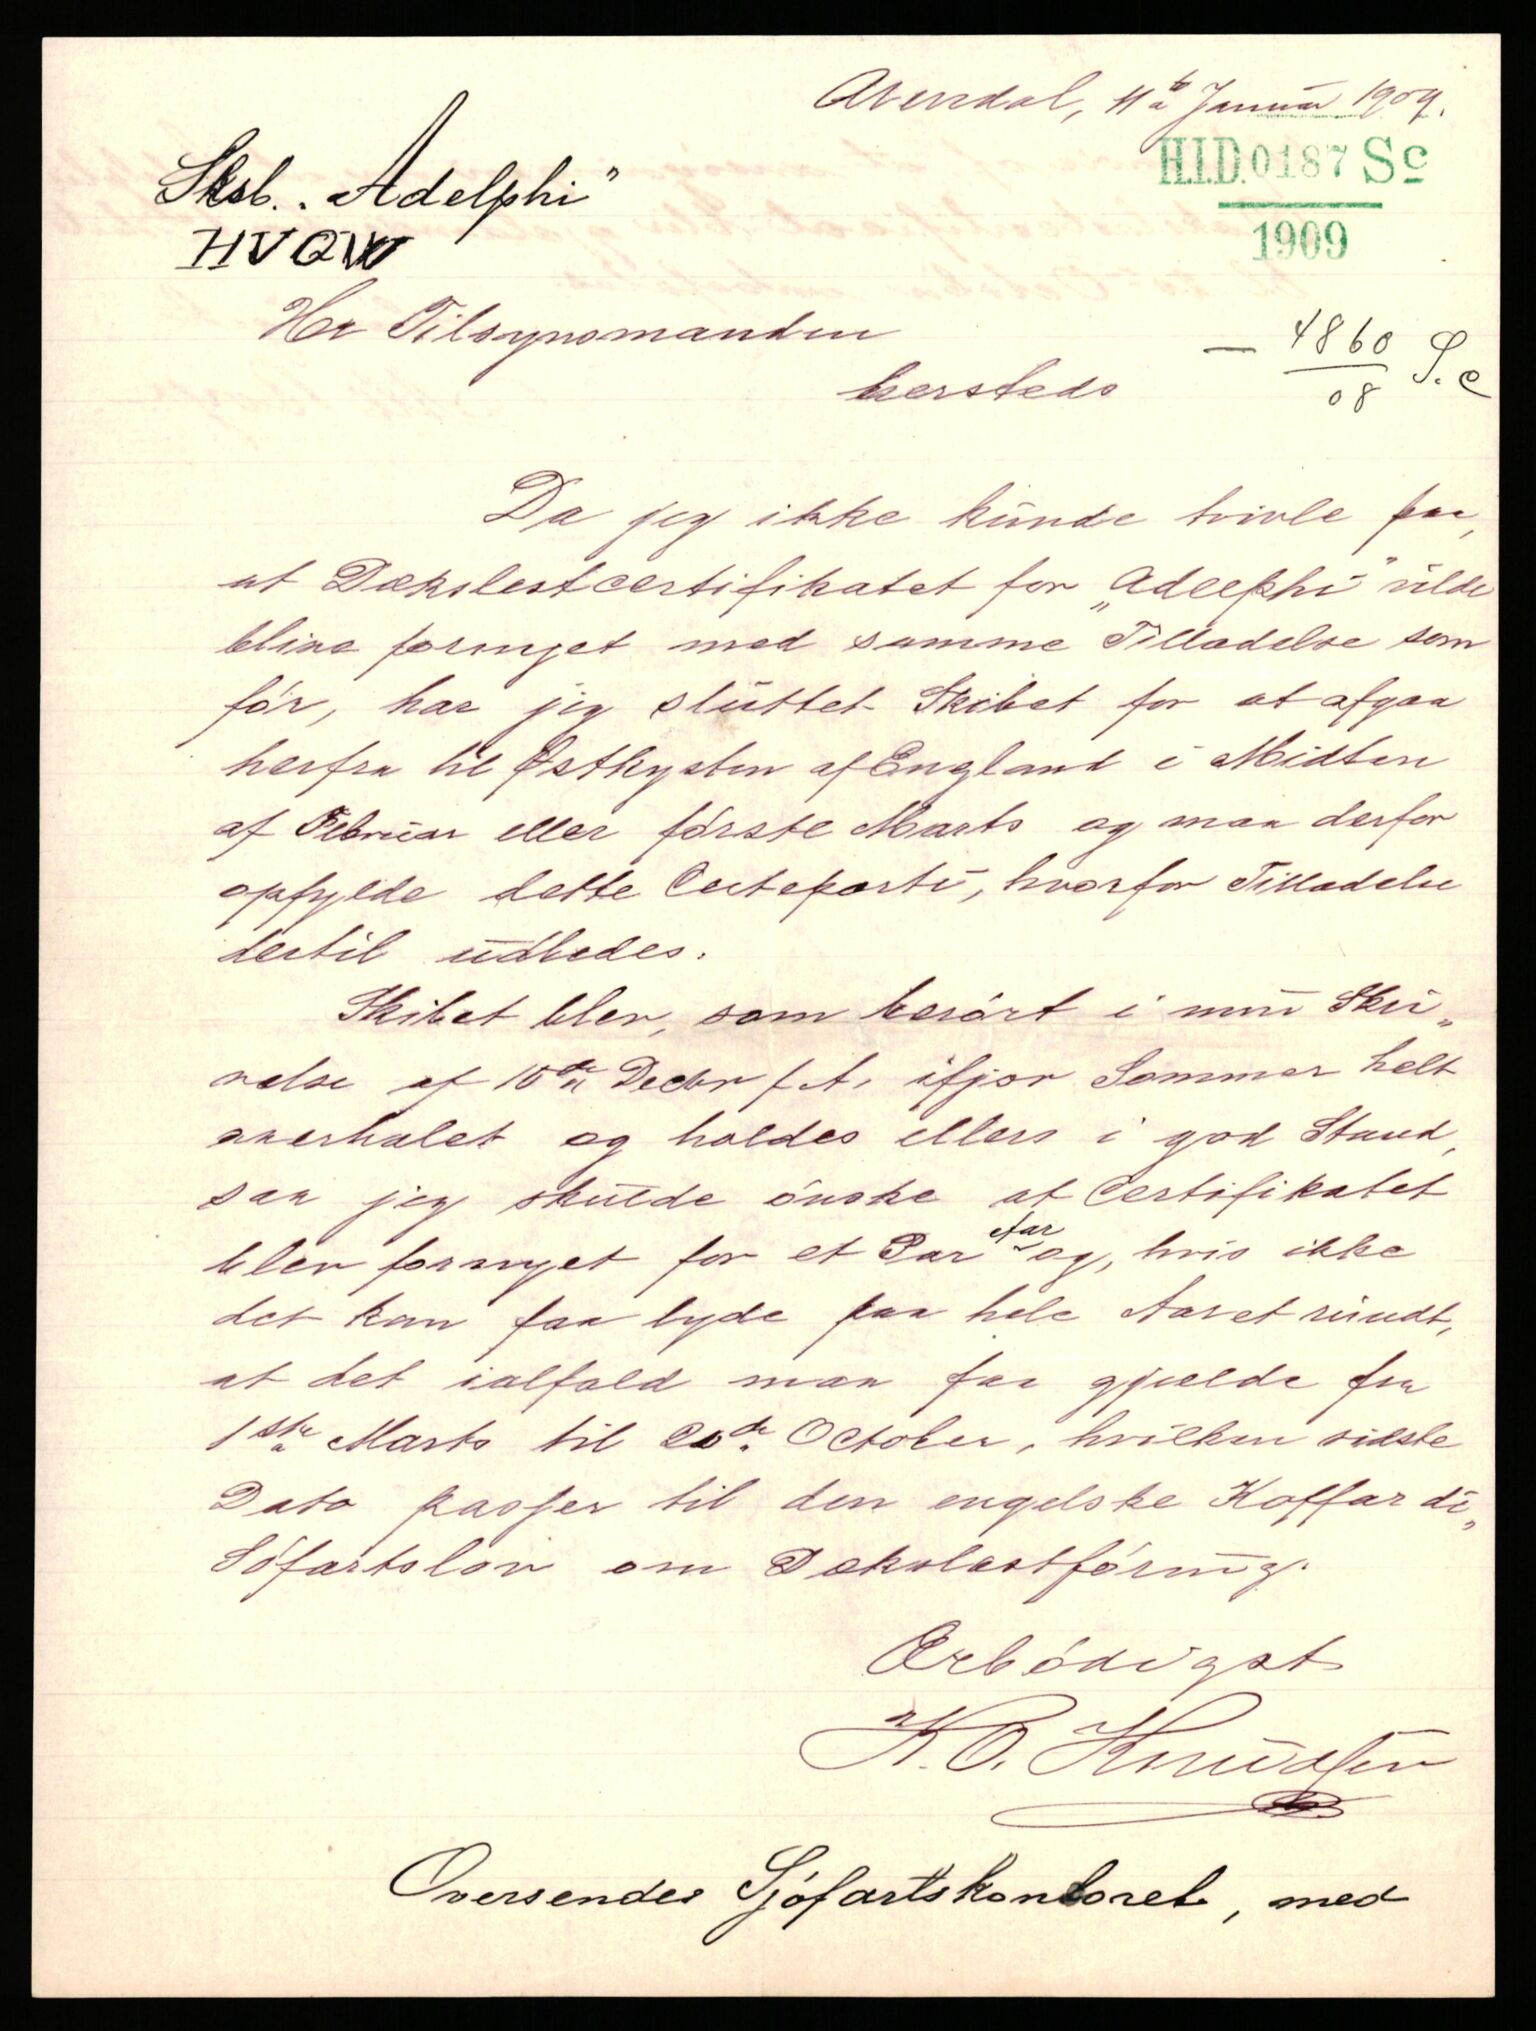 Arendal, 11te Januar 1909.
H.I.D. 0187 Sc
1909
Sksb. "Adelphi"
HVQW
Hr Tilsynsmanden
hersteds
— 4860 S.c
08
Da jeg ikke kunde tvivle paa,
at Dækslastcertifikatet for "Adelphi" vilde
blive fornyet med samme Tilladelse som
før, har jeg sluttet Skibet for at afgaa
herfra til Østkysten af England i Midten
af Februar eller første Marts og maa derfor
opfylde dette Certeparti, hvorfor Tilladelse
dertil udbedes.
Skibet blev, som berørt i min Skri-
velse af 10de Decbr f. A. ifjor Sommer helt
overhalet og holdes ellers i god Stand,
saa jeg skulde ønske at Certifikatet
blev fornyet for et Par Aar og, hvis ikke
det kan faa lyde paa hele Aaret rundt,
at det ialfald maa faa gjælde fra
1ste Marts til 20de October, hvilken sidste
Dato passer til den engelske Koffardi-
Søfartslov om Dækslastføring.
Ærbødigst
K. O. Knudsen
Oversendes Sjøfartskontoret, med